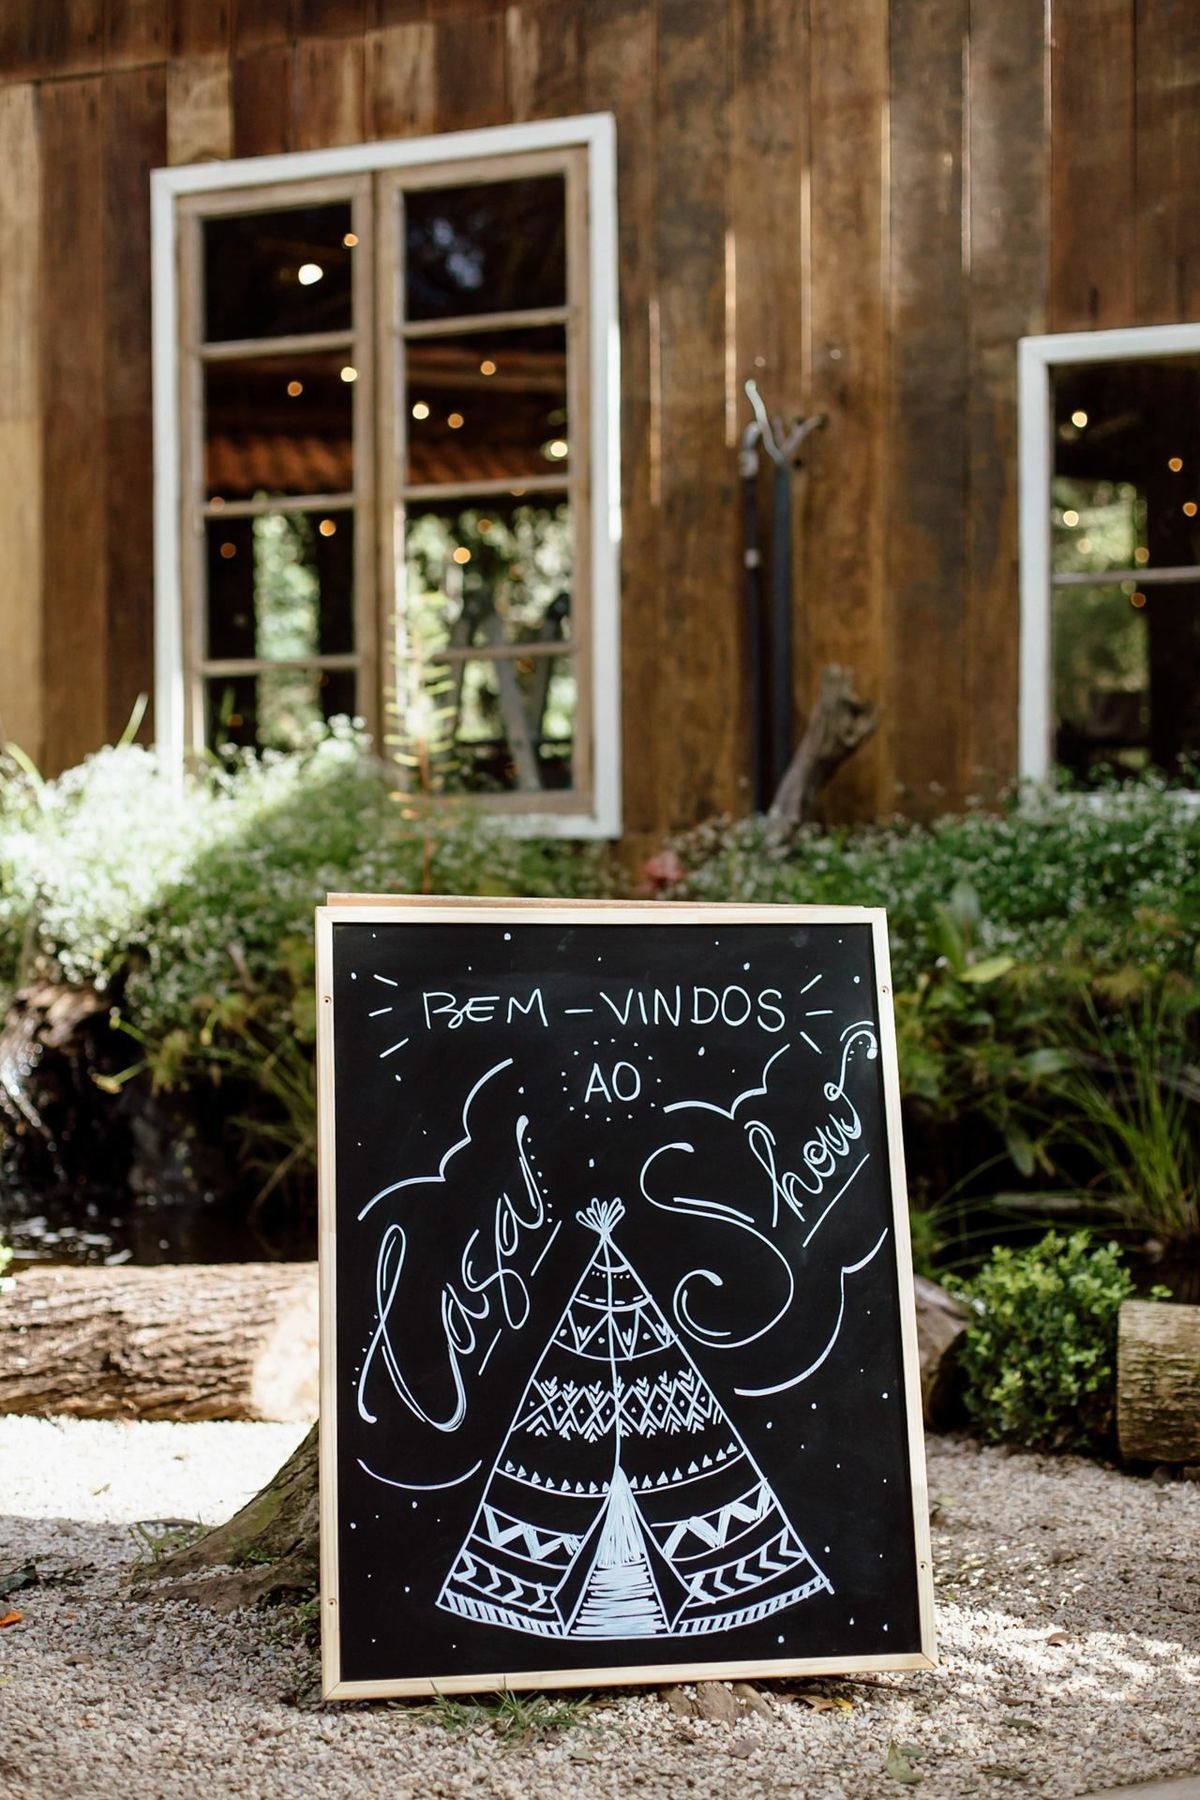 BEM-VINDOS
AO
Casa Show